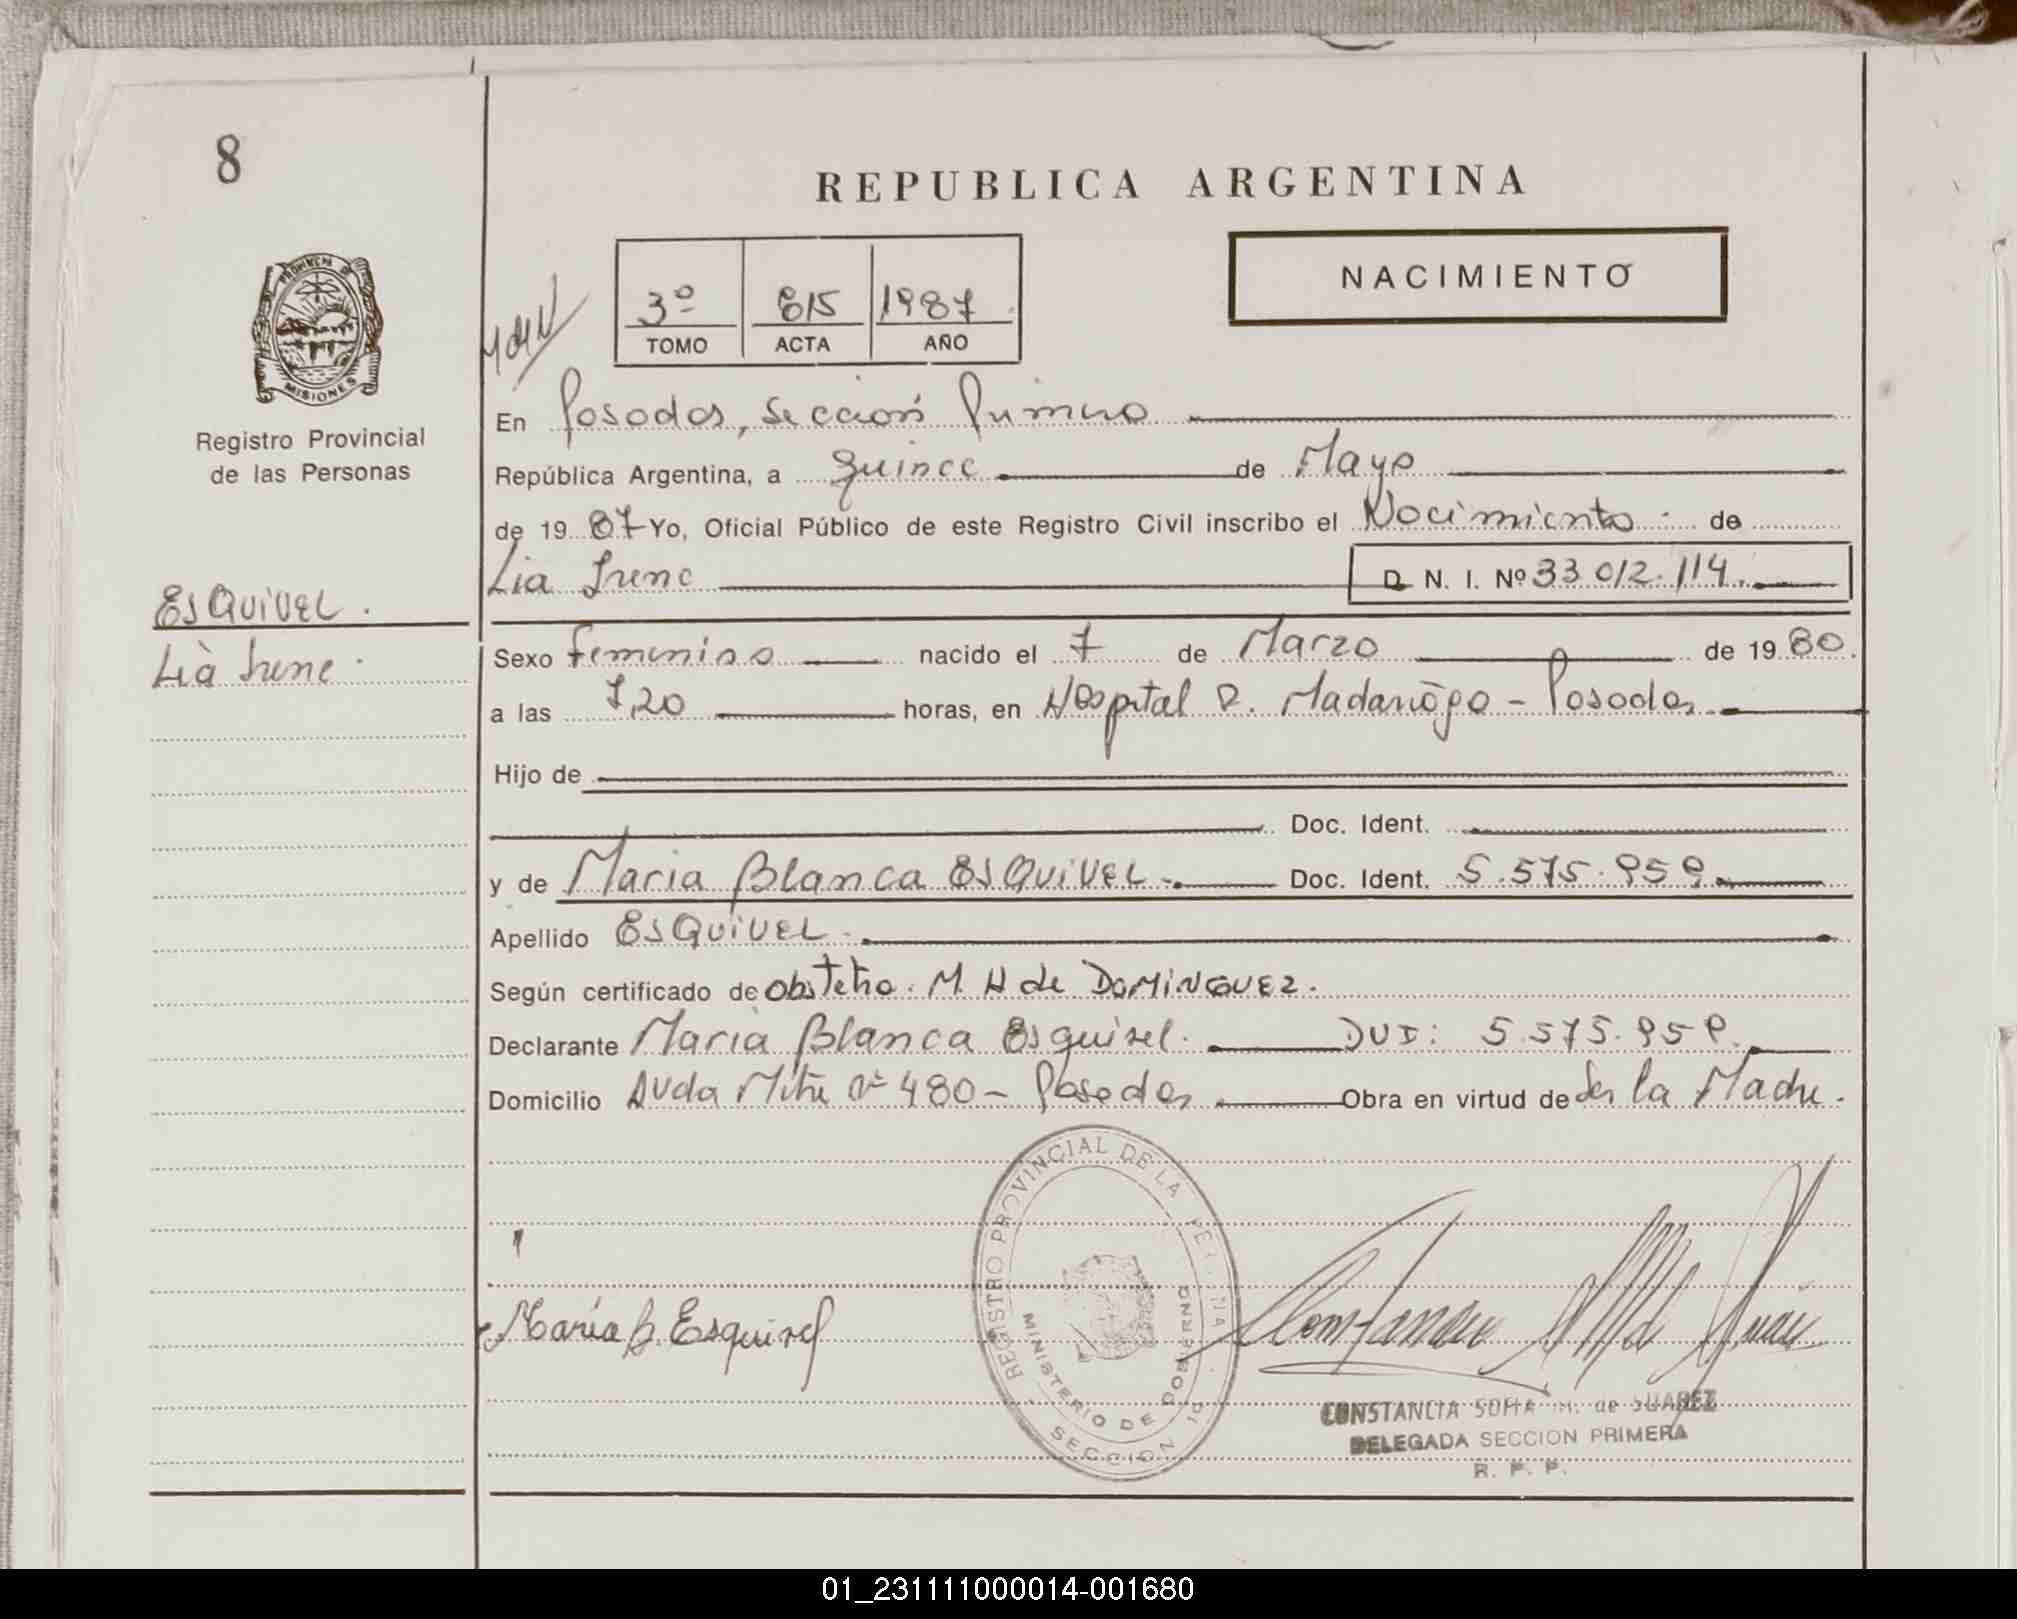 8
REPUBLICA ARGENTINA
NACIMIENTO
3º 815 1987
TOMO ACTA AÑO
Registro Provincial
de las Personas
PROVINCIA DE
MISIONES
En Posadas, Sección Primera
República Argentina, a quince de Mayo
de 1987 Yo, Oficial Público de este Registro Civil inscribo el Nacimiento de
Lia Irene D. N. I. Nº 33 012.114.
ESQUIVEL.
Lia Irene.
Sexo femenino nacido el 7 de Marzo de 1980.
a las 7,20 horas, en Hospital R. Madariaga - Posadas
Hijo de
Doc. Ident.
y de Maria Blanca ESQUIVEL Doc. Ident. 5.575.959
Apellido ESQUIVEL.
Según certificado de obstetra. M. H de DOMINGUEZ.
Declarante Maria Blanca Esquivel. DUI: 5.575.959.
Domicilio Avda Mitre Nº 480 - Posadas Obra en virtud de ser la Madre.
REGISTRO PROVINCIAL DE LA
MINISTERIO DE GOBIERNO
SECCION
María B. Esquivel
CONSTANCIA SOFIA M. de SUAREZ
DELEGADA SECCION PRIMERA
R. P. P.
01_231111000014-001680